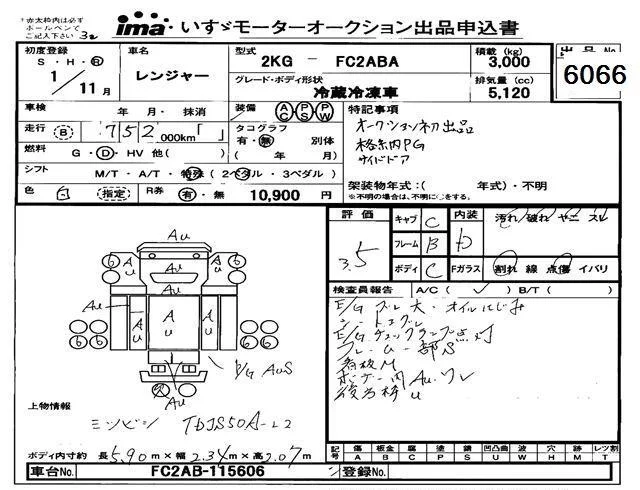 *赤太枠内は必ず
ボールペンで
ご記入下さい
ima いすゞモーターオークション出品申込書
初度登録 車名 型式 2KG － FC2ABA 積載 (kg) 3,000 出品No
S・H・R
1/11月 レンジャー グレード・ボディ形状 冷蔵冷凍車 排気量 (cc) 5,120 6066
車検 年 月・抹消 装備 AC PS PW 特記事項
走行 (B) 752,000km「 」 タコグラフ 有・無 別体 オークション初出品
燃料 G・D・HV 他( ) ( 年 月) 格納PG
サイドドア
シフト M/T・A/T・特殊 (2ペダル・3ペダル) 架装物年式:( 年式)・不明
色 白 (指定) R券 有・無 10,900 円 ※不明の場合は、不明に○をする。
評価 キャブ C 内装 汚れ 破れ ヤニ スレ
3.5 フレーム B
ボディ C Fガラス 割れ 線 点傷 イバリ
検査員報告 A/C( ✓ ) B/T( )
E/G ズレ大・オイルにじみ
E/G チェックランプ点灯
フレーム一部S
看板M
後方枠U
Au
6 6 A U A U 6 6
Au
Au A U A U A U
B/G AuS
Au
上物情報
ミンビン TDJS50A-L2
ボディ内寸約 長 5.90m × 幅 2.34m × 高 2.07m
記号 傷 板金 腐 塗 錆 凹凸曲 波 穴 跡 レツ割
A B C P S U W H M T
車台No. FC2AB-115606 登録No.